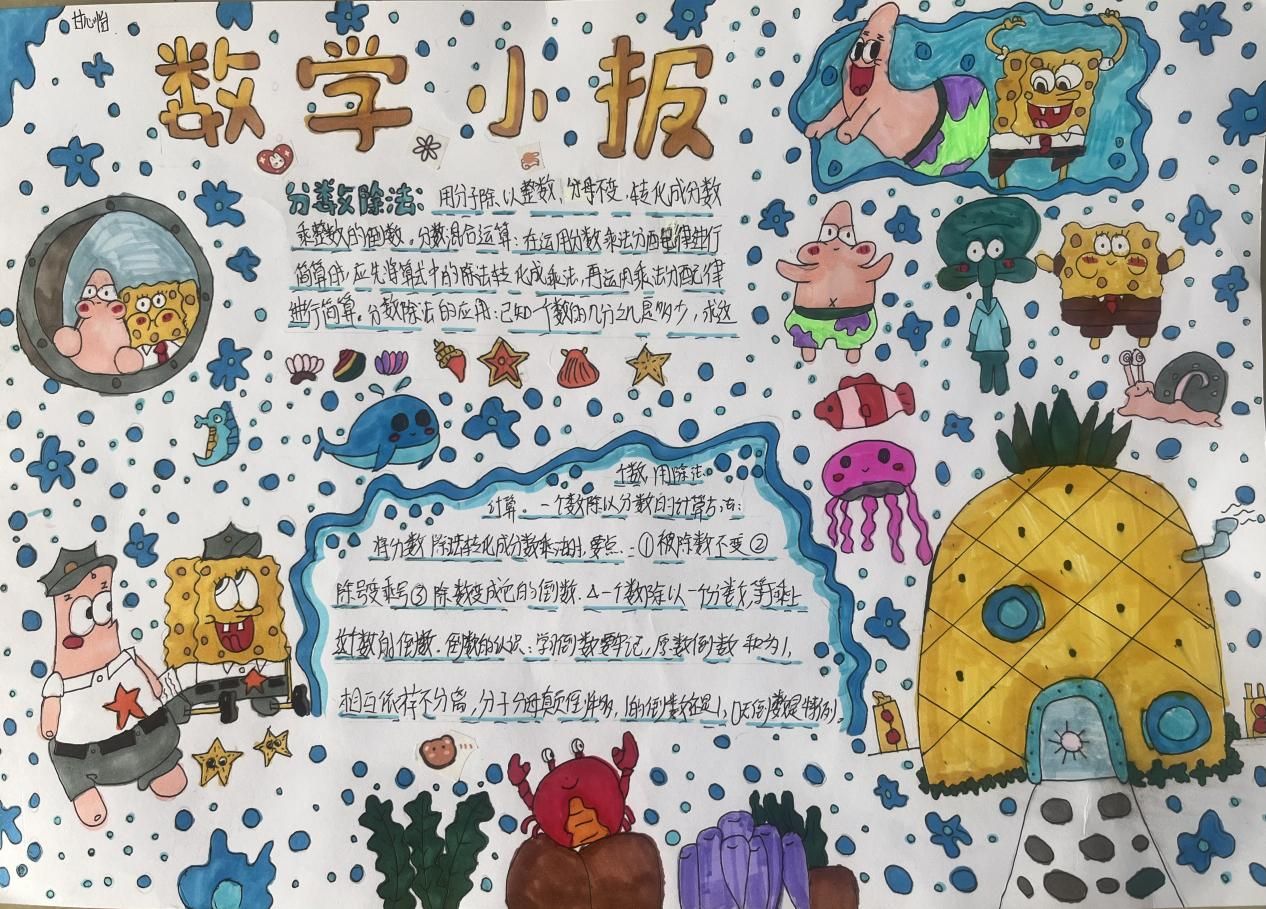 甘心怡
数学小报
分数除法：用分子除以整数，分母不变，转化成分数
乘整数的倒数。分数混合运算：在运用分数乘法分配律进行
简算时，应先将算式中的除法转化成乘法，再运用乘法分配律
进行简算。分数除法的应用：已知一个数的几分之几是多少，求这
个数，用除法
计算。一个数除以分数的计算方法：
将分数除法转化成分数乘法的要点：①被除数不变②
除号变乘号③除数变成它的倒数。△一个数除以一个分数，等于乘上
这个数的倒数。倒数的认识：学习倒数要牢记，原数倒数积为1，
相互依存不分离，分子分母颠倒，1的倒数还是1，0无倒数是特例。